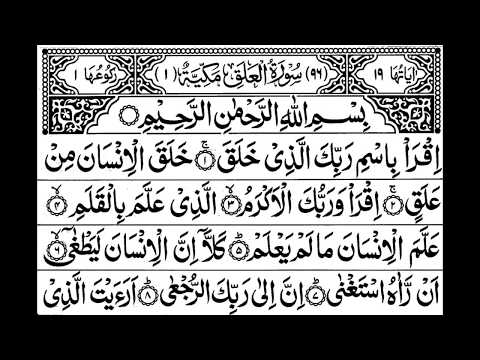 اٰیَاتُهَا ١٩ (٩٦) سُوْرَةُ الْعَلَقِ مَكِّيَّةٌ (١) رُكُوْعُهَا ١
بِسْمِ اللهِ الرَّحْمٰنِ الرَّحِيْمِ
اِقْرَاْ بِاسْمِ رَبِّكَ الَّذِيْ خَلَقَ ۚ﴿١﴾ خَلَقَ الْاِنْسَانَ مِنْ
عَلَقٍ ۚ﴿٢﴾ اِقْرَاْ وَرَبُّكَ الْاَكْرَمُ ۙ﴿٣﴾ الَّذِيْ عَلَّمَ بِالْقَلَمِ ۙ﴿٤﴾
عَلَّمَ الْاِنْسَانَ مَا لَمْ يَعْلَمْ ؕ﴿٥﴾ كَلَّاۤ اِنَّ الْاِنْسَانَ لَيَطْغٰۤى ۙ﴿٦﴾
اَنْ رَّاٰهُ اسْتَغْنٰى ؕ﴿٧﴾ اِنَّ اِلٰى رَبِّكَ الرُّجْعٰى ؕ﴿٨﴾ اَرَءَيْتَ الَّذِيْ